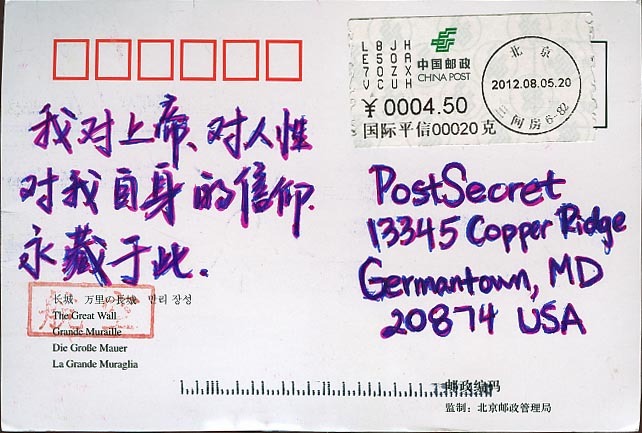 L8JH
E50A
70ZX
VCUH
中国邮政
CHINA POST
¥ 0004.50
国际平信00020 克
北京
2012.08.05.20
三间房 6-82
我对上帝、对人性
对我自身的信仰.
永藏于此.
PostSecret
13345 Copper Ridge
Germantown, MD
20874 USA
长城 万里の長城 만리 장성
The Great Wall
Grande Muraille
Die Große Mauer
La Grande Muraglia
邮政编码
监制：北京邮政管理局